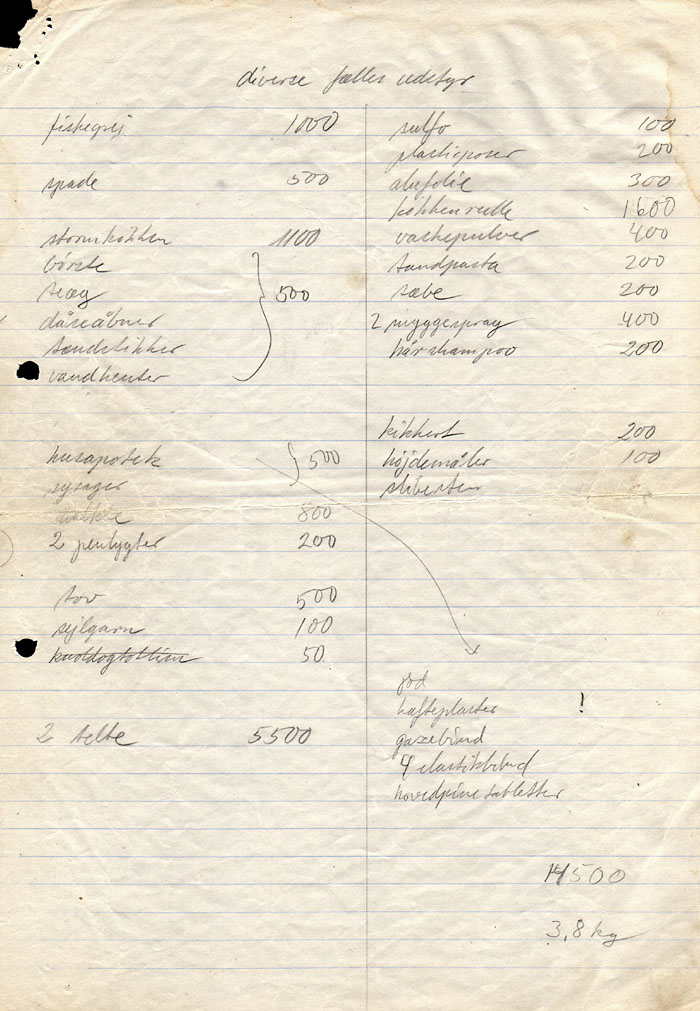 diverse fælles udstyr
fiskegrej 1000
spade 500
stormkøkken 1100
børste
500
dåseåbner
tændstikker
vandhenter
husapotek 500
sysager
800
2 penlygter 200
tov 500
sejlgarn 100
50
2 telte 5500
sulfo 100
plasticposer 200
alufolie 300
køkkenrulle 1600
vaskepulver 400
tandpasta 200
sæbe 200
2 myggespray 400
hårshampoo 200
kikkert 200
højdemåler 100
jod
hæfteplaster !
gazebind
4 elastikbind
hovedpinetabletter
14500
3,8 kg